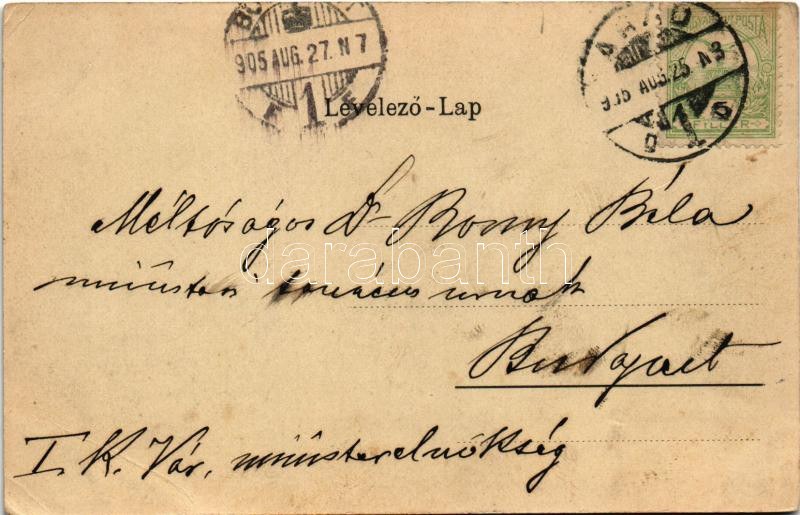 905 AUG. 27. N 7
1
905 AUG. 25. N 3
MAGYAR KIR. POSTA
FILLÉR
Levelező-Lap
Méltóságos Dr Rony Béla
darabanth
miniszteri tanácsos urnak
Budapest
I. K. Vár, miniszterelnökség